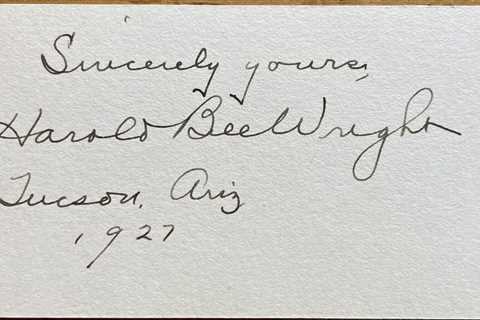 Sincerely yours,
Harold Bell Wright
Tucson, Ariz
1927